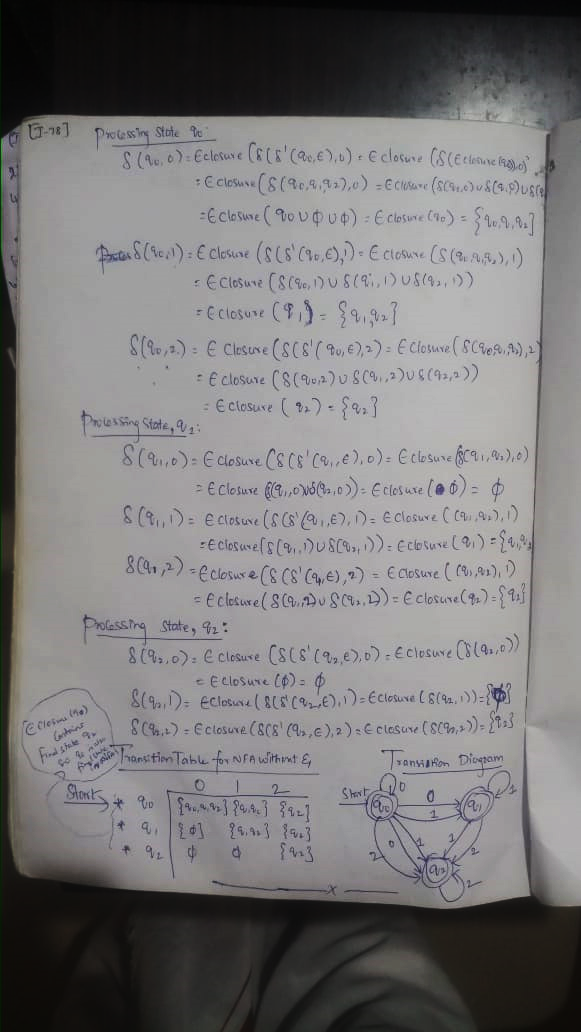 [I-78]
Processing State q0:
δ(q0,0) = Єclosure (δ(δ'(q0,ϵ),0) = Є closure (δ(Єclosure(q0),0)
= Є closure(δ(q0,q1,q2),0) = Є closure (δ(q0,0)∪δ(q1,0)∪δ(q
= Єclosure( q0 ∪ ϕ ∪ ϕ) = Є closure (q0) = {q0,q1,q2}
δ(q0,1) = Єclosure (δ(δ'(q0,ϵ),1) = Єclosure (δ(q0,q1,q2),1)
= Єclosure (δ(q0,1) ∪ δ(q1,1) ∪ δ(q2,1))
= Є closure (q1) = {q1,q2}
δ(q0,2) = Є Closure (δ(δ'(q0,ϵ),2) = Єclosure (δ(q0,q1,q2),2)
= Єclosure (δ(q0,2) ∪ δ(q1,2) ∪ δ(q2,2))
= Єclosure ( q2) = {q2}
Processing State, q1:
δ(q1,0) = Єclosure (δ(δ'(q1,ϵ),0) = Єclosure (δ(q1,q2),0)
= Єclosure (δ(q1,0)∪δ(q2,0)) = Єclosure ( ϕ) = ϕ
δ(q1,1) = Єclosure (δ(δ'(q1,ϵ),1) = Єclosure ( (q1,q2),1)
= Єclosure(δ(q1,1)∪δ(q2,1)) = Єclosure (q1) = {q1,q2
δ(q1,2) = Єclosure (δ(δ'(q1,ϵ),2) = Єclosure ( (q1,q2),1)
= Єclosure(δ(q1,2)∪ δ(q2,2)) = Єclosure(q2) = {q2}
Processing State, q2:
δ(q2,0) = Єclosure (δ(δ'(q2,ϵ),0) = Єclosure (δ(q2,0))
= Єclosure (ϕ) = ϕ
δ(q2,1) = Єclosure (δ(δ'(q2,ϵ),1) = Єclosure (δ(q2,1)) = {ϕ}
δ(q2,2) = Єclosure (δ(δ'(q2,ϵ),2) = Єclosure (δ(q2,2)) = {q2}
Єclosure(q0)
Contains
final state q2
so q0 is also
Final state
Transition Table for NFA without ϵ,
0 1 2
Start * q0 {q0,q1,q2} {q1,q2} {q2}
* q1 {ϕ} {q1,q2} {q2}
* q2 ϕ ϕ {q2}
Transition Diagram
Start q0 0 0 1 q1 1
2 0 1 1 2
2 q2 2
x